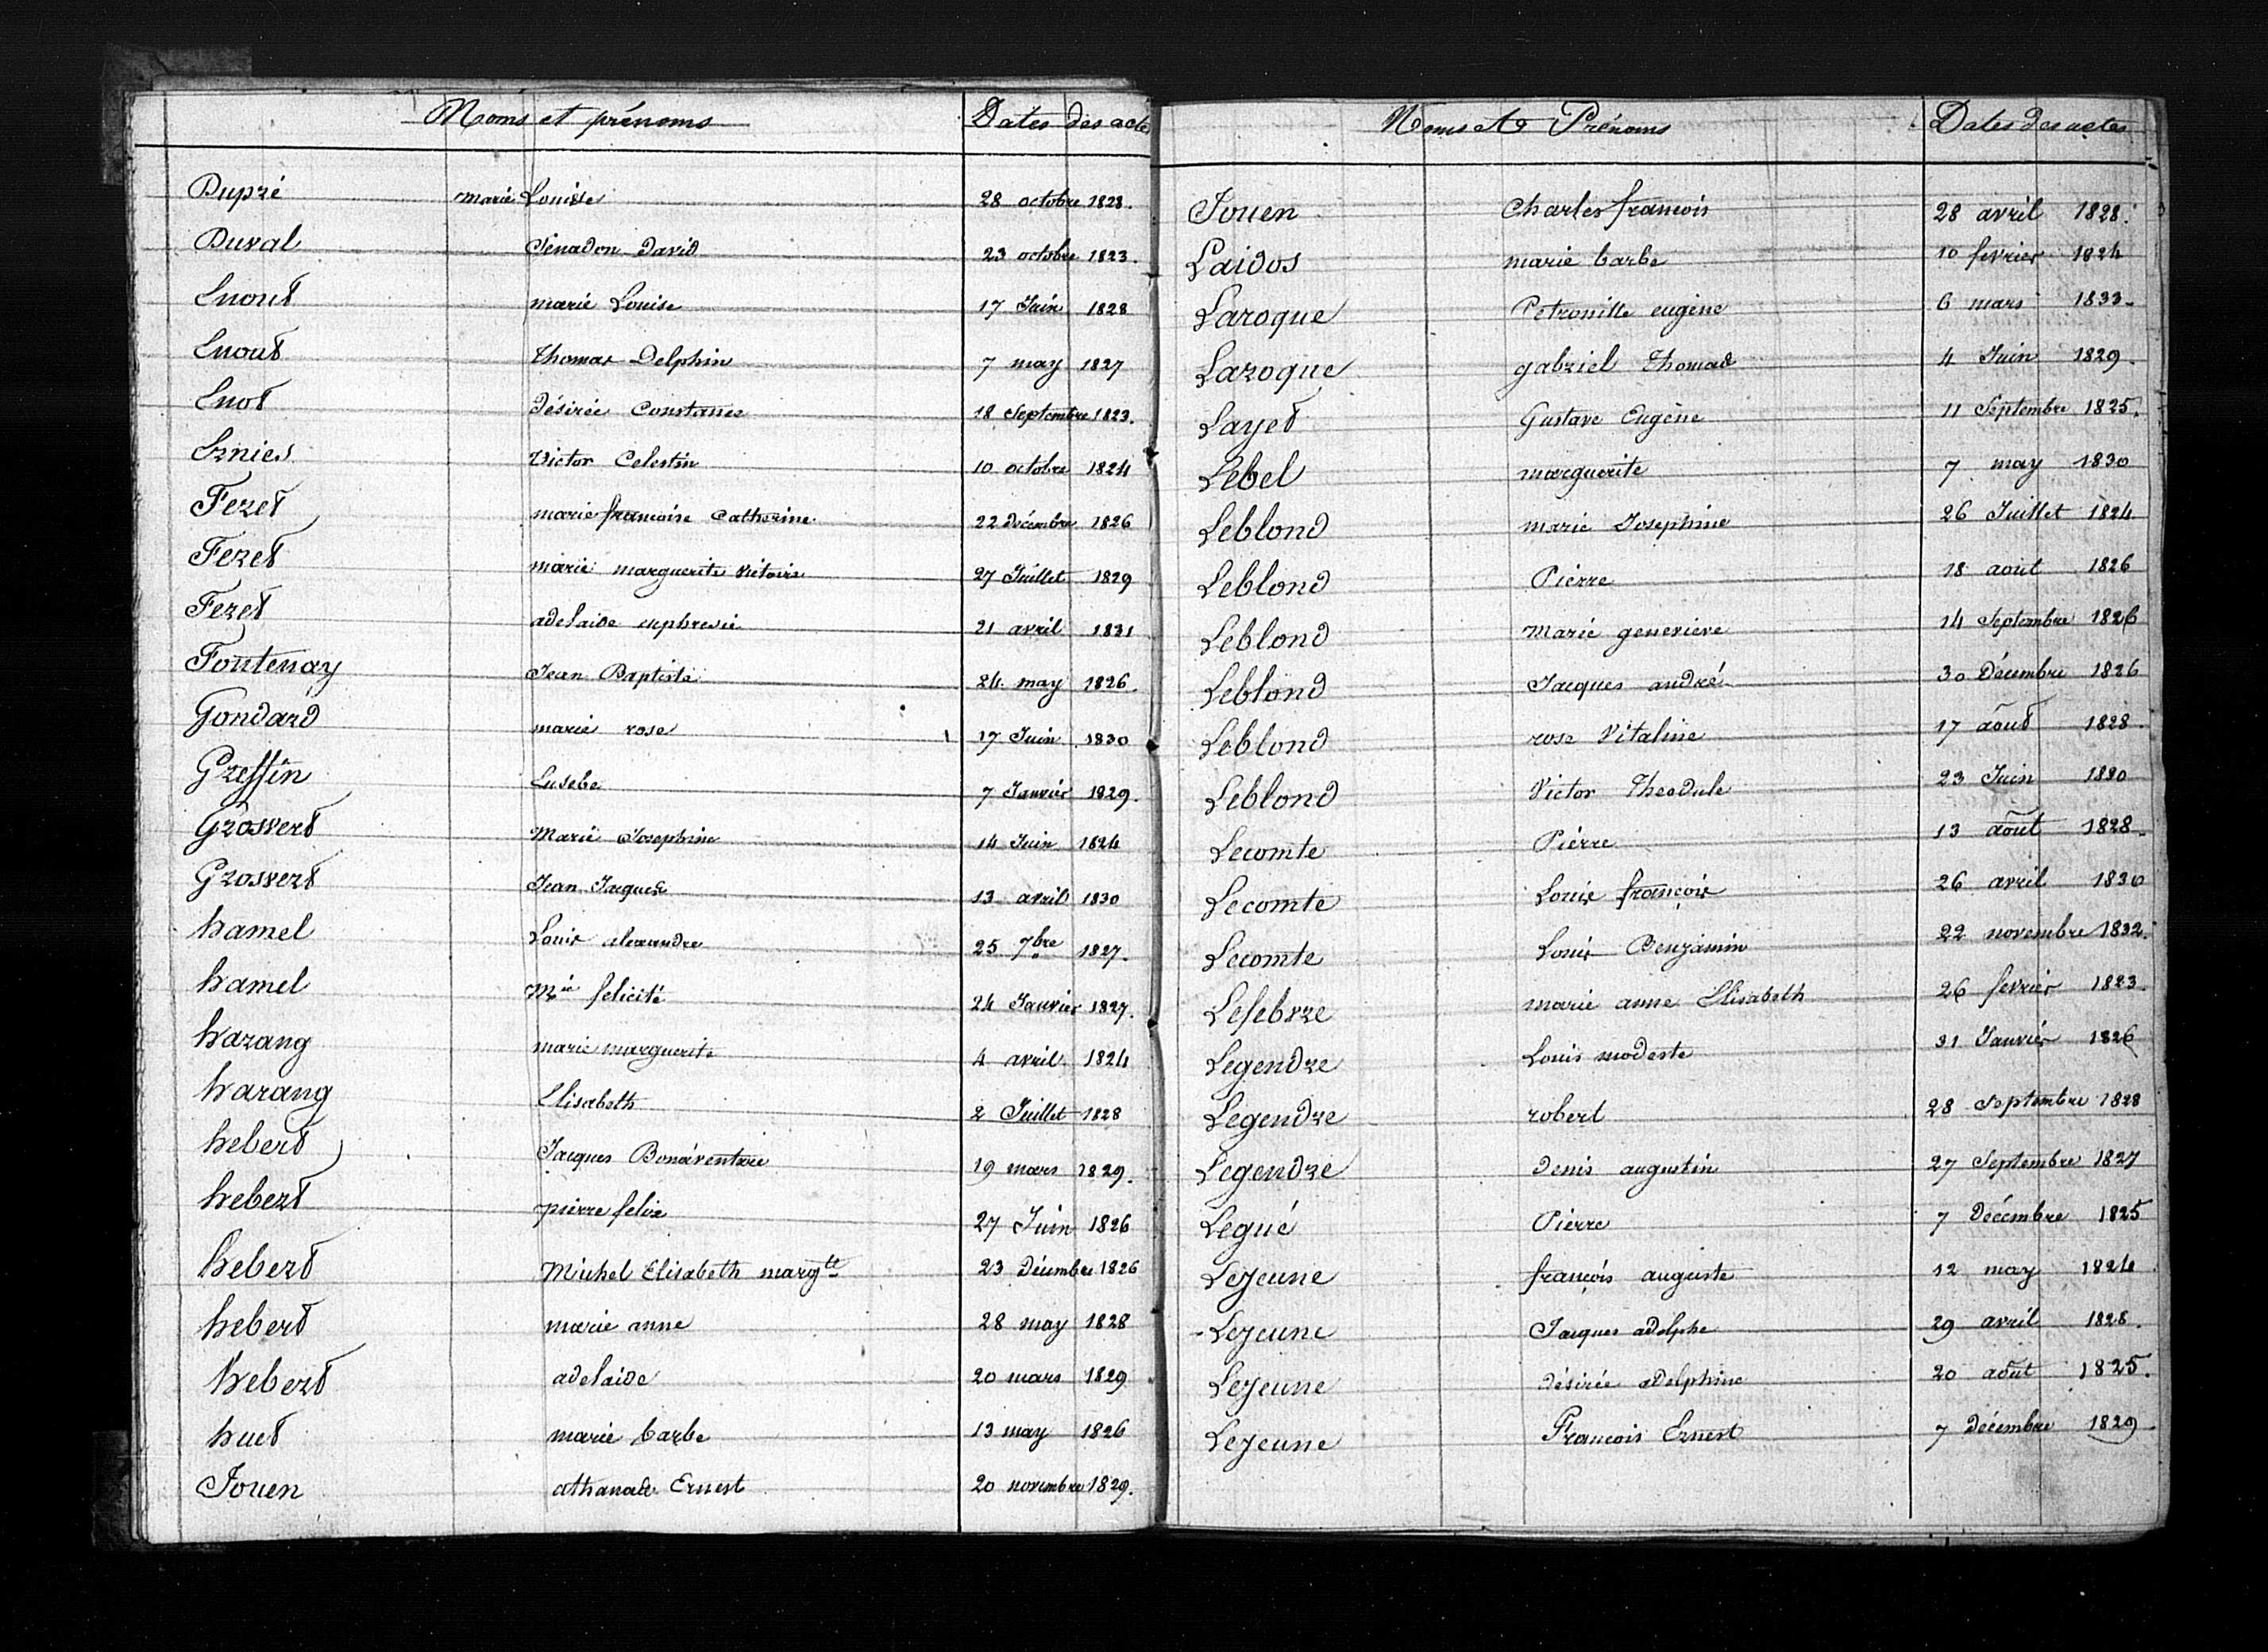 Noms et prénoms Dates des actes
Dupré marie Louise 28 octobre 1828.
Duval Sénadon david 23 octobre 1823.
Enout marie Louise 17 Juin 1828
Enout thomas Delphin 7 may 1827
Enot désirée Constance 18 Septembre 1823.
Ernies Victor Celestin 10 octobre 1824
Fezet marie francoise Catherine 22 décembre 1826
Fezet marie marguerite victoire 27 Juillet 1829
Fezet adelaide euphresie 21 avril 1831
Fontenay Jean Baptiste 24 may 1826.
Gondard marie rose 17 Juin 1830
Gressin Eusebe 7 Janvier 1829.
Grosvert Marie Josephine 14 Juin 1824
Grosvert Jean Jacques 13 avril 1830
hamel Louis alexandre 25 7bre 1827.
hamel Mie felicité 24 Janvier 1827.
harang marie marguerite 4 avril 1824
harang Elisabeth 2 Juillet 1828
hebert Jacques Bonaventure 19 mars 1829.
hebert pierre felix 27 Juin 1826
hebert Michel Elisabeth margte 23 Décembre 1826
hebert marie anne 28 may 1828
hebert adelaide 20 mars 1829
huet marie barbe 13 may 1826
Jouen athanase Ernest 20 novembre 1829.
Noms et Prénoms Dates des actes
Jouen Charles francois 28 avril 1828.
Laidos marie barbe 10 fevrier 1824
Laroque Petronille eugène 6 mars 1833
Laroque gabriel Thomas 4 Juin 1829.
Layet Gustave Eugène 11 Septembre 1825.
Lebel marguerite 7 may 1830
Leblond marie Josephine 26 Juillet 1824
Leblond Pierre 18 aout 1826
Leblond Marie genevieve 14 Septembre 1826
Leblond Jacques andré 30 Décembre 1826
Leblond rose Vitaline 17 août 1828.
Leblond Victor Theodule 23 Juin 1830
Lecomte Pierre 13 août 1828.
Lecomte Louis françois 26 avril 1830
Lecomte Louis Benjamin 22 novembre 1832.
Lefebvre marie anne Elisabeth 26 fevrier 1823.
Legendre Louis modeste 31 Janvier 1826
Legendre robert 28 septembre 1828
Legendre denis augustin 27 Septembre 1827
Legué Pierre 7 Décembre 1825
Lejeune françois auguste 12 may 1824.
Lejeune Jacques adolphe 29 avril 1828.
Lejeune désirée adelphine 20 août 1825.
Lejeune Francois Ernest 7 décembre 1829.